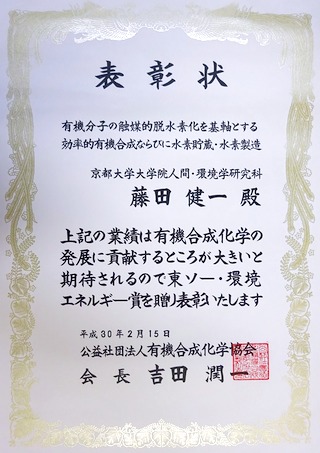 表彰状
有機分子の触媒的脱水素化を基軸とする
効率的有機合成ならびに水素貯蔵・水素製造
京都大学大学院人間・環境学研究科
藤田健一殿
上記の業績は有機合成化学の
発展に貢献するところが大きいと
期待されるので東ソー・環境
エネルギー賞を贈り表彰いたします
平成30年2月15日
公益社団法人有機合成化学協会
会長吉田潤一